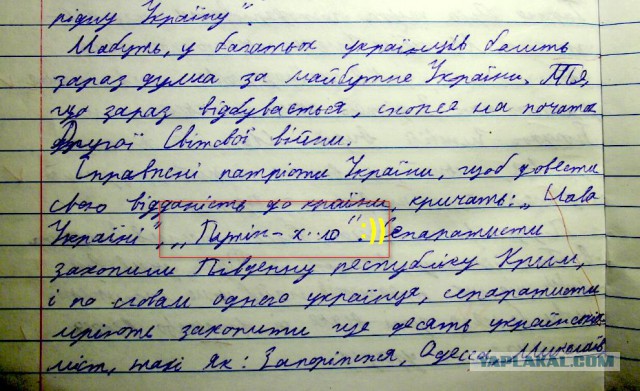 рідну Україну".
Мабуть, у багатьох українців болить
зараз думка за майбутнє України. Те,
що зараз відбувається, схоже на початок
Другої Світової війни.
Справжні патріоти України, щоб довести
свою відданість до країни, кричать: „Слава
Україні", „Путін - х..ло". :)) Сепаратисти
захопили Південну республіку Крим,
і по словам одного українця, сепаратисти
мріють захопити ще десять українських
міст, такі як: Запоріжжя, Одеса, Миколаїв
YAPLAKAL.COM